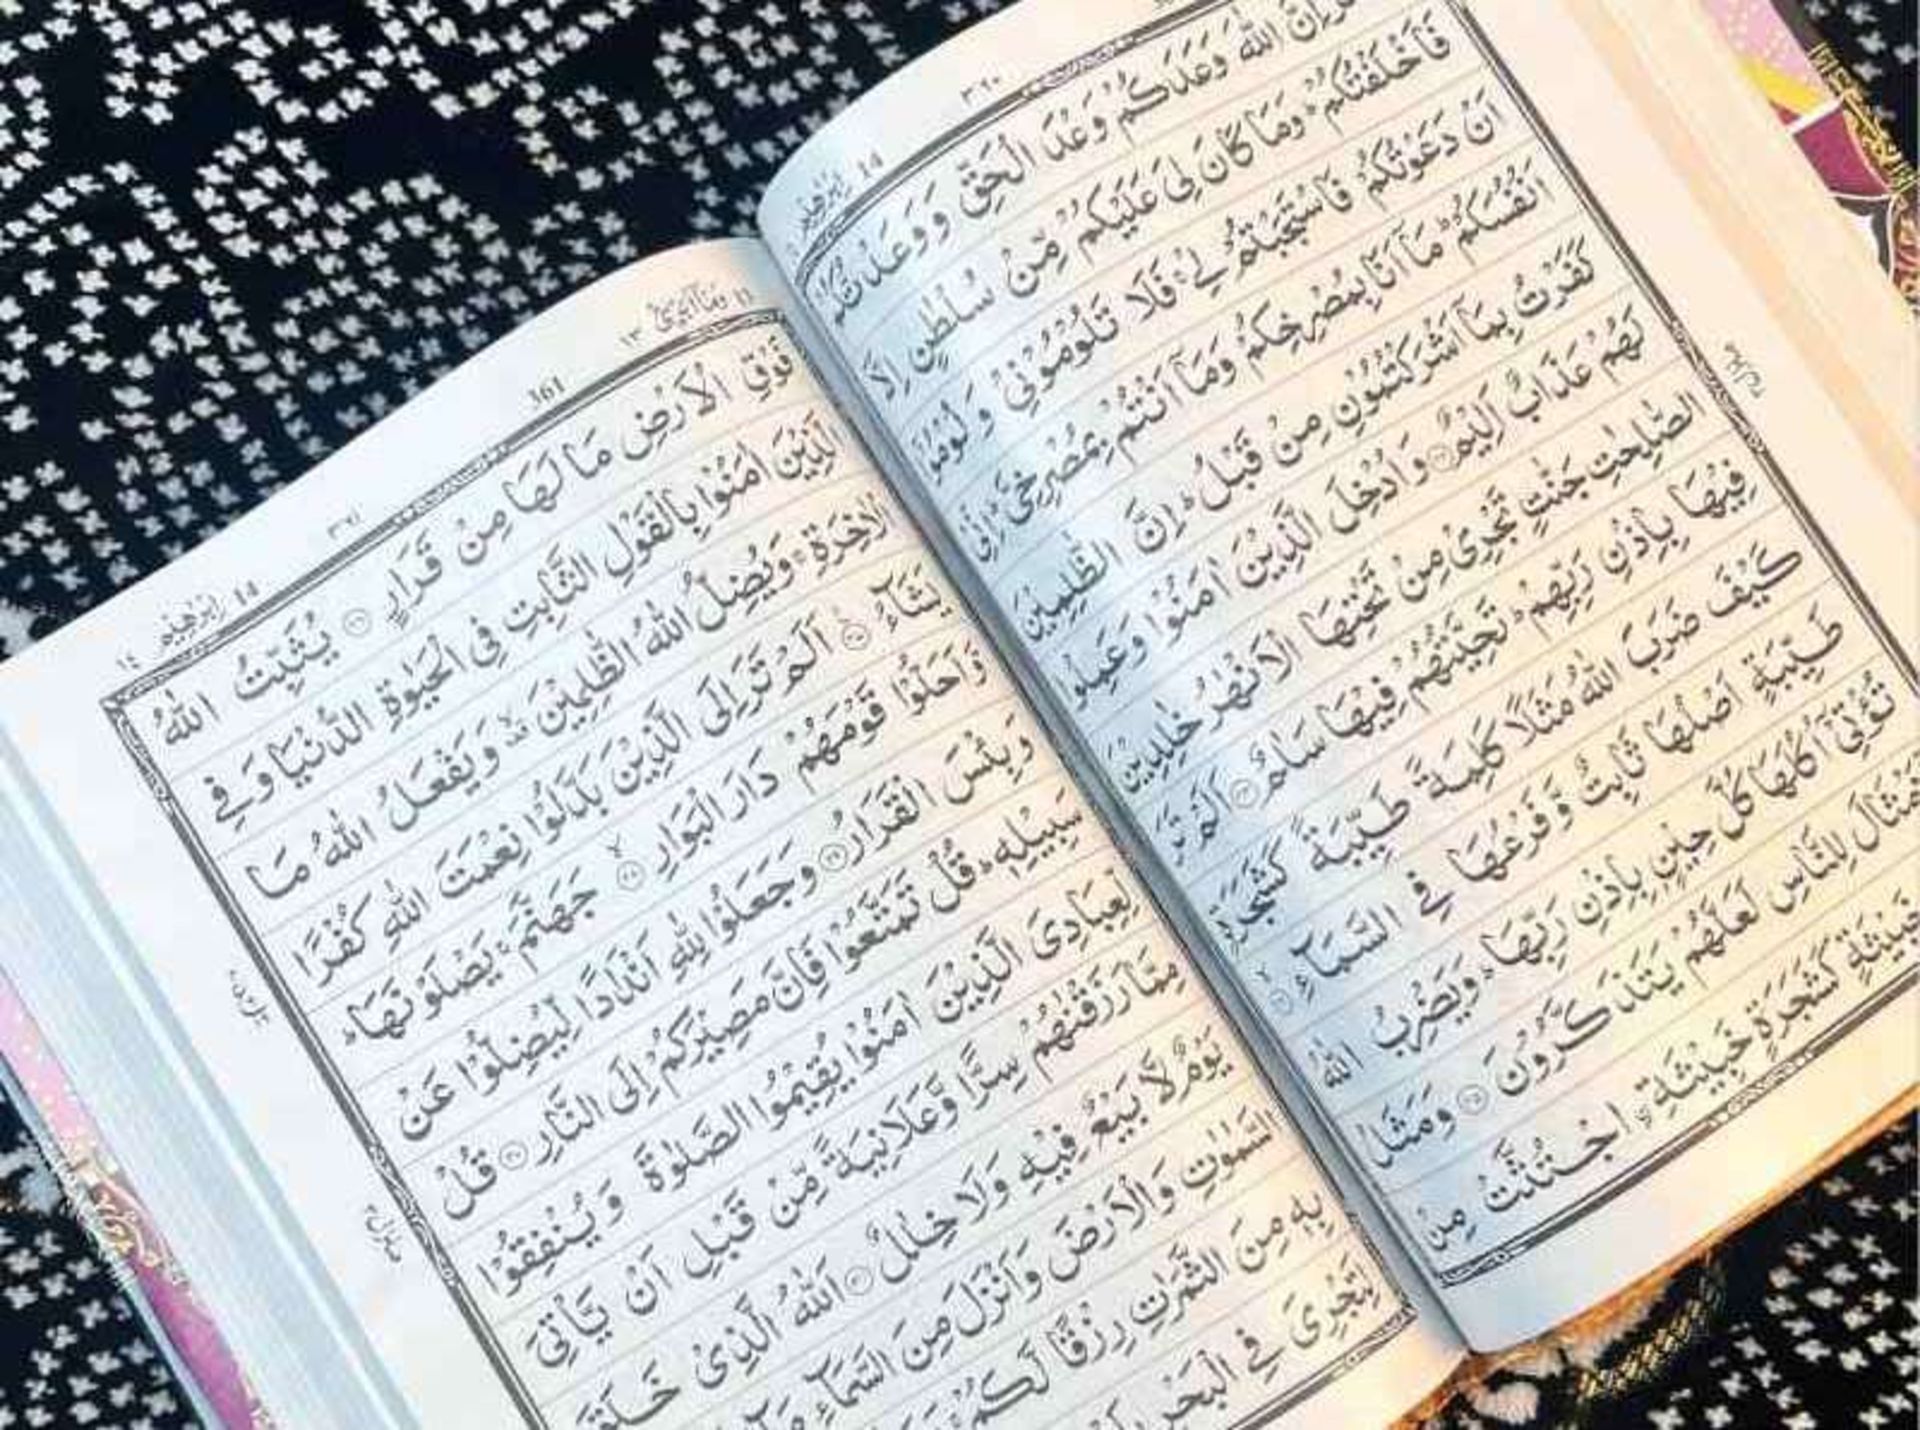 ٣٦٠
ابرٰهيم ١٤
اِنَّ اللّٰهَ وَعَدَكُمْ وَعْدَ الْحَقِّ وَوَعَدْتُّكُمْ
فَاَخْلَفْتُكُمْ ؕ وَمَا كَانَ لِىَ عَلَيْكُمْ مِّنْ سُلْطٰنٍ اِلَّاۤ
اَنْ دَعَوْتُكُمْ فَاسْتَجَبْتُمْ لِىْ ۚ فَلَا تَلُوْمُوْنِىْ وَلُوْمُوْۤا
اَنْفُسَكُمْ ؕ مَاۤ اَنَا بِمُصْرِخِكُمْ وَمَاۤ اَنْتُمْ بِمُصْرِخِىَّ ؕ اِنِّىْ
كَفَرْتُ بِمَاۤ اَشْرَكْتُمُوْنِ مِنْ قَبْلُ ؕ اِنَّ الظّٰلِمِيْنَ
لَهُمْ عَذَابٌ اَلِيْمٌ ﴿٢٢﴾ وَاُدْخِلَ الَّذِيْنَ اٰمَنُوْا وَعَمِلُوا
الصّٰلِحٰتِ جَنّٰتٍ تَجْرِىْ مِنْ تَحْتِهَا الْاَنْهٰرُ خٰلِدِيْنَ
فِيْهَا بِاِذْنِ رَبِّهِمْ ؕ تَحِيَّتُهُمْ فِيْهَا سَلٰمٌ ﴿٢٣﴾ اَلَمْ تَرَ
كَيْفَ ضَرَبَ اللّٰهُ مَثَلًا كَلِمَةً طَيِّبَةً كَشَجَرَةٍ
طَيِّبَةٍ اَصْلُهَا ثَابِتٌ وَّفَرْعُهَا فِى السَّمَآءِ ﴿٢٤﴾
تُؤْتِىْۤ اُكُلَهَا كُلَّ حِيْنٍ بِاِذْنِ رَبِّهَا ؕ وَيَضْرِبُ اللّٰهُ
الْاَمْثَالَ لِلنَّاسِ لَعَلَّهُمْ يَتَذَكَّرُوْنَ ﴿٢٥﴾ وَمَثَلُ
خَبِيْثَةٍ كَشَجَرَةٍ خَبِيْثَةِ ۨ اجْتُثَّتْ مِنْ
منزل ٣
وماۤ ابرئ ١٣
361
٣٦١
ابرٰهيم ١٤
١٤
فَوْقِ الْاَرْضِ مَا لَهَا مِنْ قَرَارٍ ﴿٢٦﴾ يُثَبِّتُ اللّٰهُ
الَّذِيْنَ اٰمَنُوْا بِالْقَوْلِ الثَّابِتِ فِى الْحَيٰوةِ الدُّنْيَا وَفِى
الْاٰخِرَةِ ۚ وَيُضِلُّ اللّٰهُ الظّٰلِمِيْنَ ۙ وَيَفْعَلُ اللّٰهُ مَا
يَشَآءُ ﴿٢٧﴾ اَلَمْ تَرَ اِلَى الَّذِيْنَ بَدَّلُوْا نِعْمَتَ اللّٰهِ كُفْرًا
وَاَحَلُّوْا قَوْمَهُمْ دَارَ الْبَوَارِ ﴿٢٨﴾ جَهَنَّمَ ۚ يَصْلَوْنَهَا ؕ
وَبِئْسَ الْقَرَارُ ﴿٢٩﴾ وَجَعَلُوْا لِلّٰهِ اَنْدَادًا لِّيُضِلُّوْا عَنْ
سَبِيْلِهٖ ؕ قُلْ تَمَتَّعُوْا فَاِنَّ مَصِيْرَكُمْ اِلَى النَّارِ ﴿٣٠﴾ قُلْ
لِّعِبَادِىَ الَّذِيْنَ اٰمَنُوْا يُقِيْمُوا الصَّلٰوةَ وَيُنْفِقُوْا
مِمَّا رَزَقْنٰهُمْ سِرًّا وَّعَلَانِيَةً مِّنْ قَبْلِ اَنْ يَّاْتِىَ
يَوْمٌ لَّا بَيْعٌ فِيْهِ وَلَا خِلٰلٌ ﴿٣١﴾ اَللّٰهُ الَّذِىْ خَلَقَ
السَّمٰوٰتِ وَالْاَرْضَ وَاَنْزَلَ مِنَ السَّمَآءِ مَآءً
بِهٖ مِنَ الثَّمَرٰتِ رِزْقًا لَّكُمْ ۚ
لِتَجْرِىَ فِى الْبَحْرِ
منزل ٣